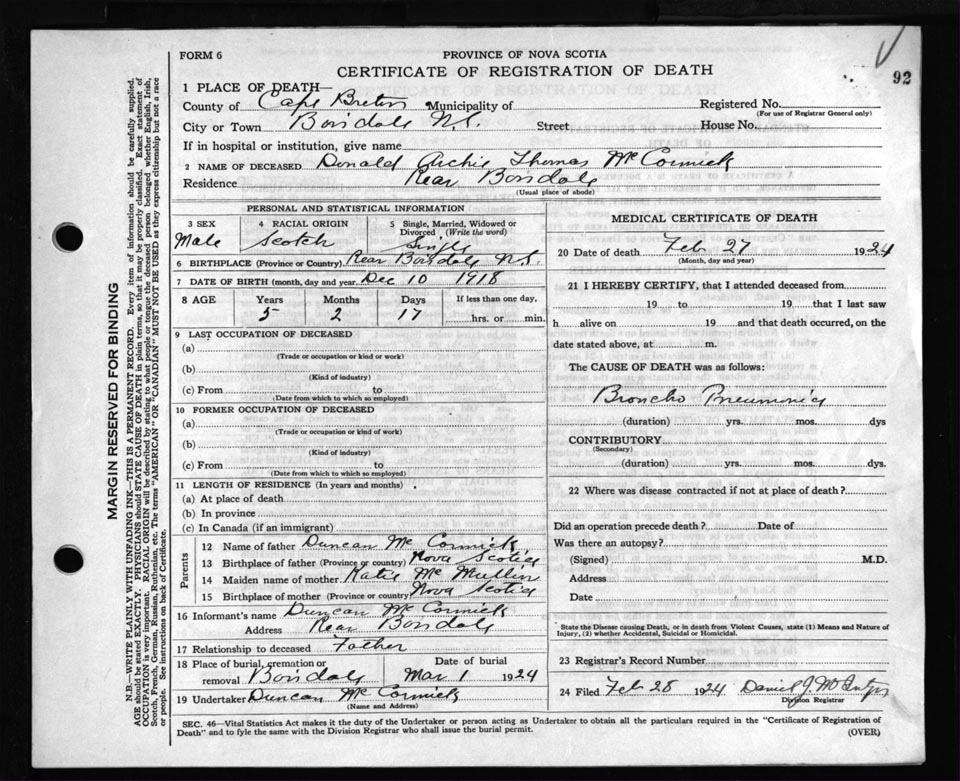 FORM 6
PROVINCE OF NOVA SCOTIA
CERTIFICATE OF REGISTRATION OF DEATH
92
1 PLACE OF DEATH—
County of Cape Breton Municipality of Registered No.
(For use of Registrar General only)
City or Town Boisdale N.S. Street House No.
If in hospital or institution, give name
2 NAME OF DECEASED Donald Archie Thomas McCormick
Residence Rear Boisdale
(Usual place of abode)
PERSONAL AND STATISTICAL INFORMATION
3 SEX 4 RACIAL ORIGIN 5 Single, Married, Widowed or
Divorced (Write the word)
Male Scotch Single
6 BIRTHPLACE (Province or Country) Rear Boisdale N.S.
7 DATE OF BIRTH (month, day and year Dec 10 1918
8 AGE Years Months Days If less than one day,
5 2 17 hrs. or min.
9 LAST OCCUPATION OF DECEASED
(a)
(Trade or occupation or kind or work)
(b)
(Kind of industry)
(c) From to
(Date from which to which so employed)
10 FORMER OCCUPATION OF DECEASED
(a)
(Trade or occupation or kind of work)
(b)
(Kind of industry)
(c) From to
(Date from which to which so employed)
11 LENGTH OF RESIDENCE (In years and months)
(a) At place of death
(b) In province
(c) In Canada (if an immigrant)
Parents
12 Name of father Duncan McCormick
13 Birthplace of father (Province or country) Nova Scotia
14 Maiden name of mother Katie McMullin
15 Birthplace of mother (Province or country) Nova Scotia
16 Informant's name Duncan McCormick
Address Rear Boisdale
17 Relationship to deceased Father
18 Place of burial, cremation or Date of burial
removal Boisdale Mar 1 1924
19 Undertaker Duncan McCormick
(Name and Address)
MEDICAL CERTIFICATE OF DEATH
20 Date of death Feb 27 1924
(Month, day and year)
21 I HEREBY CERTIFY, that I attended deceased from
19 to 19 that I last saw
h alive on 19 and that death occurred, on the
date stated above, at m.
The CAUSE OF DEATH was as follows:
Broncho Pneumonia
(duration) yrs. mos. dys
CONTRIBUTORY
(Secondary)
(duration) yrs. mos. dys.
22 Where was disease contracted if not at place of death?
Did an operation precede death? Date of
Was there an autopsy?
(Signed) M.D.
Address
Date
State the Disease causing Death, or in death from Violent Causes, state (1) Means and Nature of
Injury, (2) whether Accidental, Suicidal or Homicidal.
23 Registrar's Record Number
24 Filed Feb 28 1924 Daniel J.
Division Registrar
SEC. 46—Vital Statistics Act makes it the duty of the Undertaker or person acting as Undertaker to obtain all the particulars required in the "Certificate of Registration of
Death" and to fyle the same with the Division Registrar who shall issue the burial permit.
(OVER)
MARGIN RESERVED FOR BINDING
N.B.—WRITE PLAINLY WITH UNFADING INK—THIS IS A PERMANENT RECORD. Every item of information should be carefully supplied.
AGE should be stated EXACTLY. PHYSICIANS should STATE CAUSE OF DEATH in plain terms, so that it may be properly classified. Exact statement of
OCCUPATION is very important. RACIAL ORIGIN will be described by stating to what people or tongue the deceased person belonged, whether English, Irish,
Scotch, French, German, Russian, Ruthenian, etc. The terms "AMERICAN" OR "CANADIAN" MUST NOT BE USED as they express citizenship but not a race
or people. See instructions on back of Certificate.